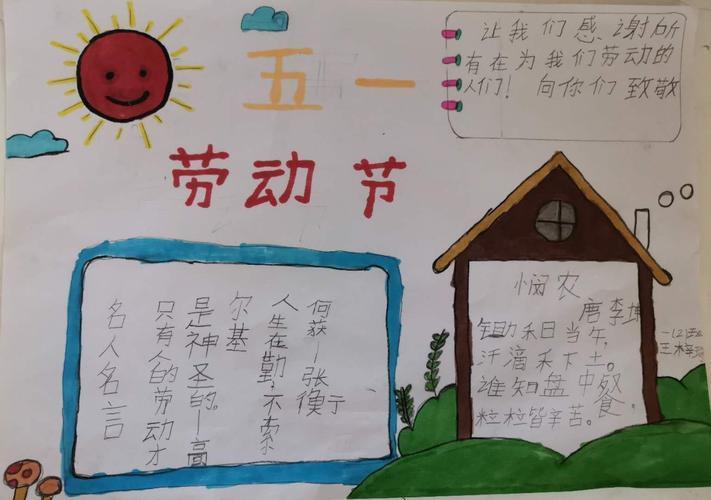 五一
劳动节
让我们感谢所
有在为我们劳动的
人们! 向你们致敬
名人名言
只有人的劳动才
是神圣的。—高
尔基
人生在勤,不索
何获—张衡于
悯农
唐李坤
锄禾日当午,
汗滴禾下土。
谁知盘中餐,
粒粒皆辛苦。